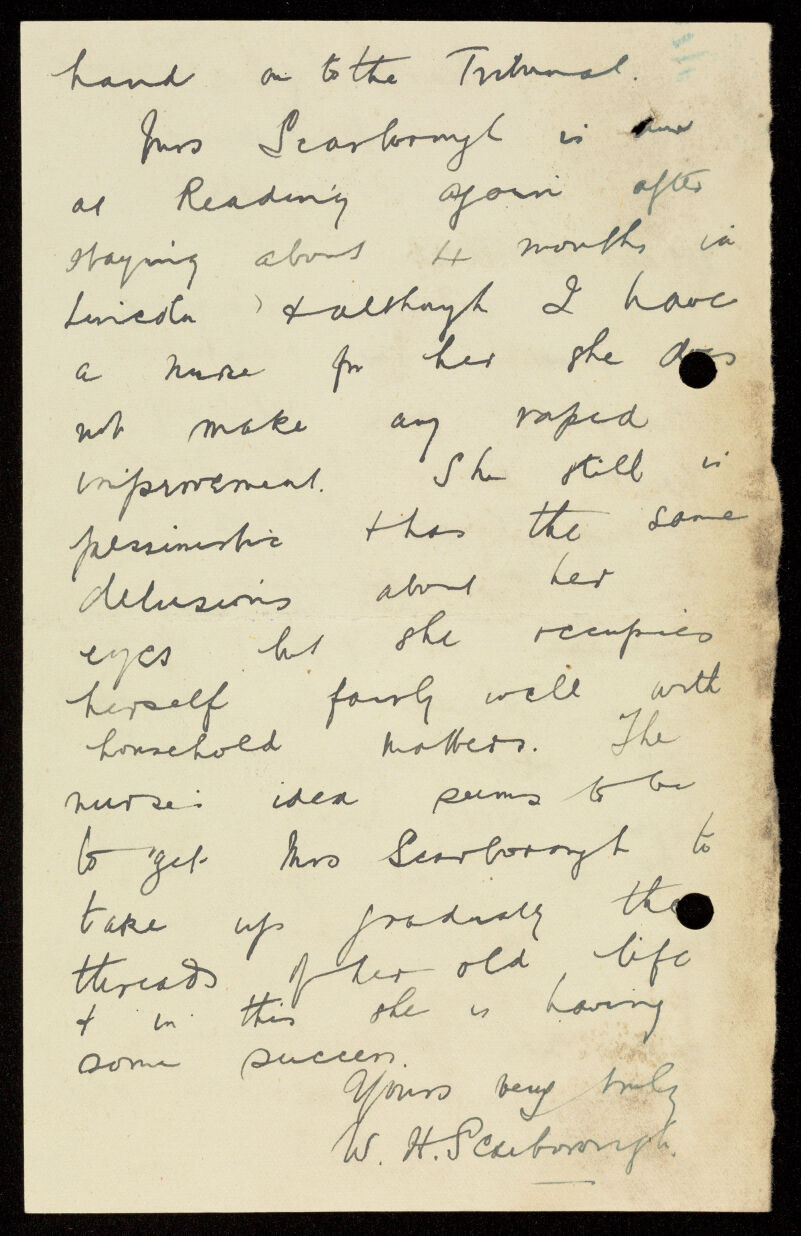 hand on to the Tribunal.
Mrs Scarborough is
at Reading again after
staying about 4 months in
Lincoln, & although I have
a nurse for her she does
not make any rapid
improvement. She still is
pessimistic & has the same
delusions about her
eyes but she occupies
herself fairly well with
household matters. The
nurse's idea seems to be
to get Mrs Scarborough to
take up gradually the
threads of her old life
& in this she is having
some success.
Yours very truly
W. H. Scarborough.